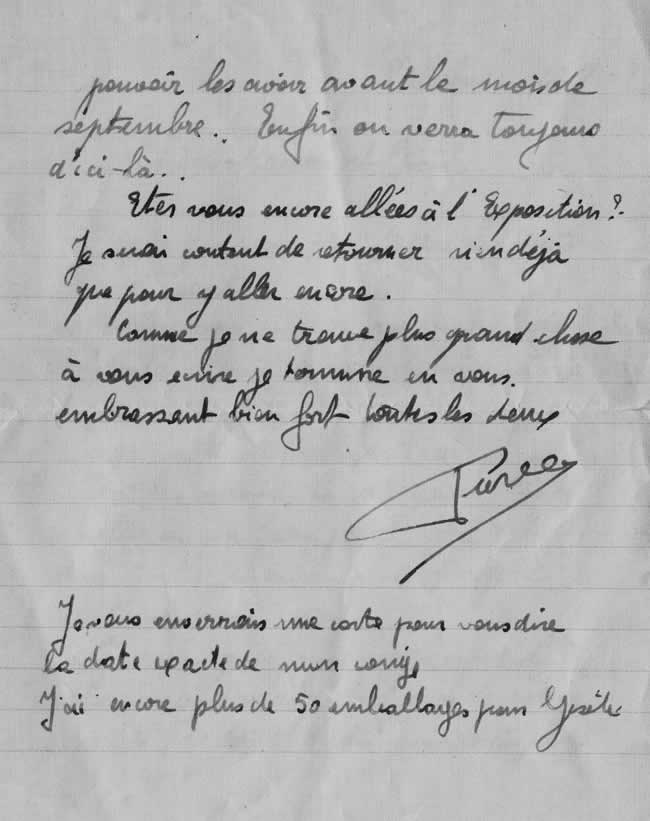 pouvoir les avoir avant le mois de
septembre.. Enfin on verra toujours
d'ici-là..
Etes vous encore allées à l'Exposition?
Je serai content de retourner rien déjà
que pour y aller encore.
Comme je ne trouve plus grand chose
à vous écrire je termine en vous.
embrassant bien fort toutes les deux
Je vous enverrais une carte pour vous dire
la date exacte de mon congé
J'ai encore plus de 50 emballages pour Gisèle